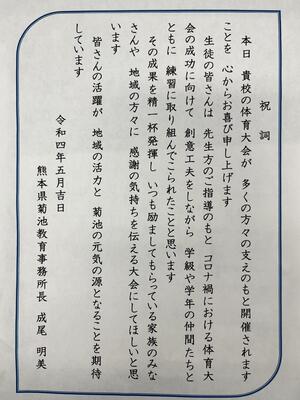 祝詞
本日 貴校の体育大会が 多くの方々の支えのもと開催されます
ことを 心からお喜び申し上げます
生徒の皆さんは 先生方のご指導のもと コロナ禍における体育大
会の成功に向けて 創意工夫をしながら 学級や学年の仲間たちと
ともに 練習に取り組んでこられたことと思います
その成果を精一杯発揮し いつも励ましてもらっている家族のみな
さんや 地域の方々に 感謝の気持ちを伝える大会にしてほしいと思
います
皆さんの活躍が 地域の活力と 菊池の元気の源となることを期待
しています
令和四年五月吉日
熊本県菊池教育事務所長 成尾 明美